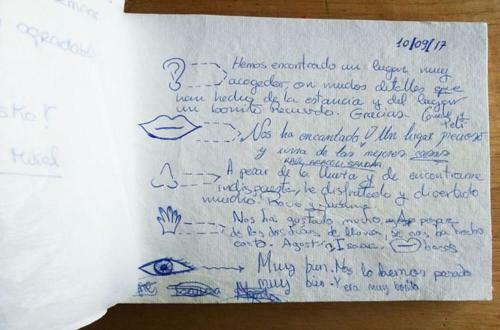 agradable
Mikel
10/09/17
Hemos encontrado un lugar muy
acogedor, con muchos detalles que
han hecho de la estancia y del lugar
un bonito recuerdo. Gracias.
Nos ha encantado. Un lugar precioso
y una de las mejores casas
A pesar de la lluvia y de encontrarme
indispuesta, he disfrutado y divertido
mucho. Rocio y
Nos ha gustado mucho, A pesar
de los dos dias de lluvia, se nos ha hecho
corto. Agustín, besos
Muy bien. Nos lo hemos pasado
muy bien. Y era muy bonito